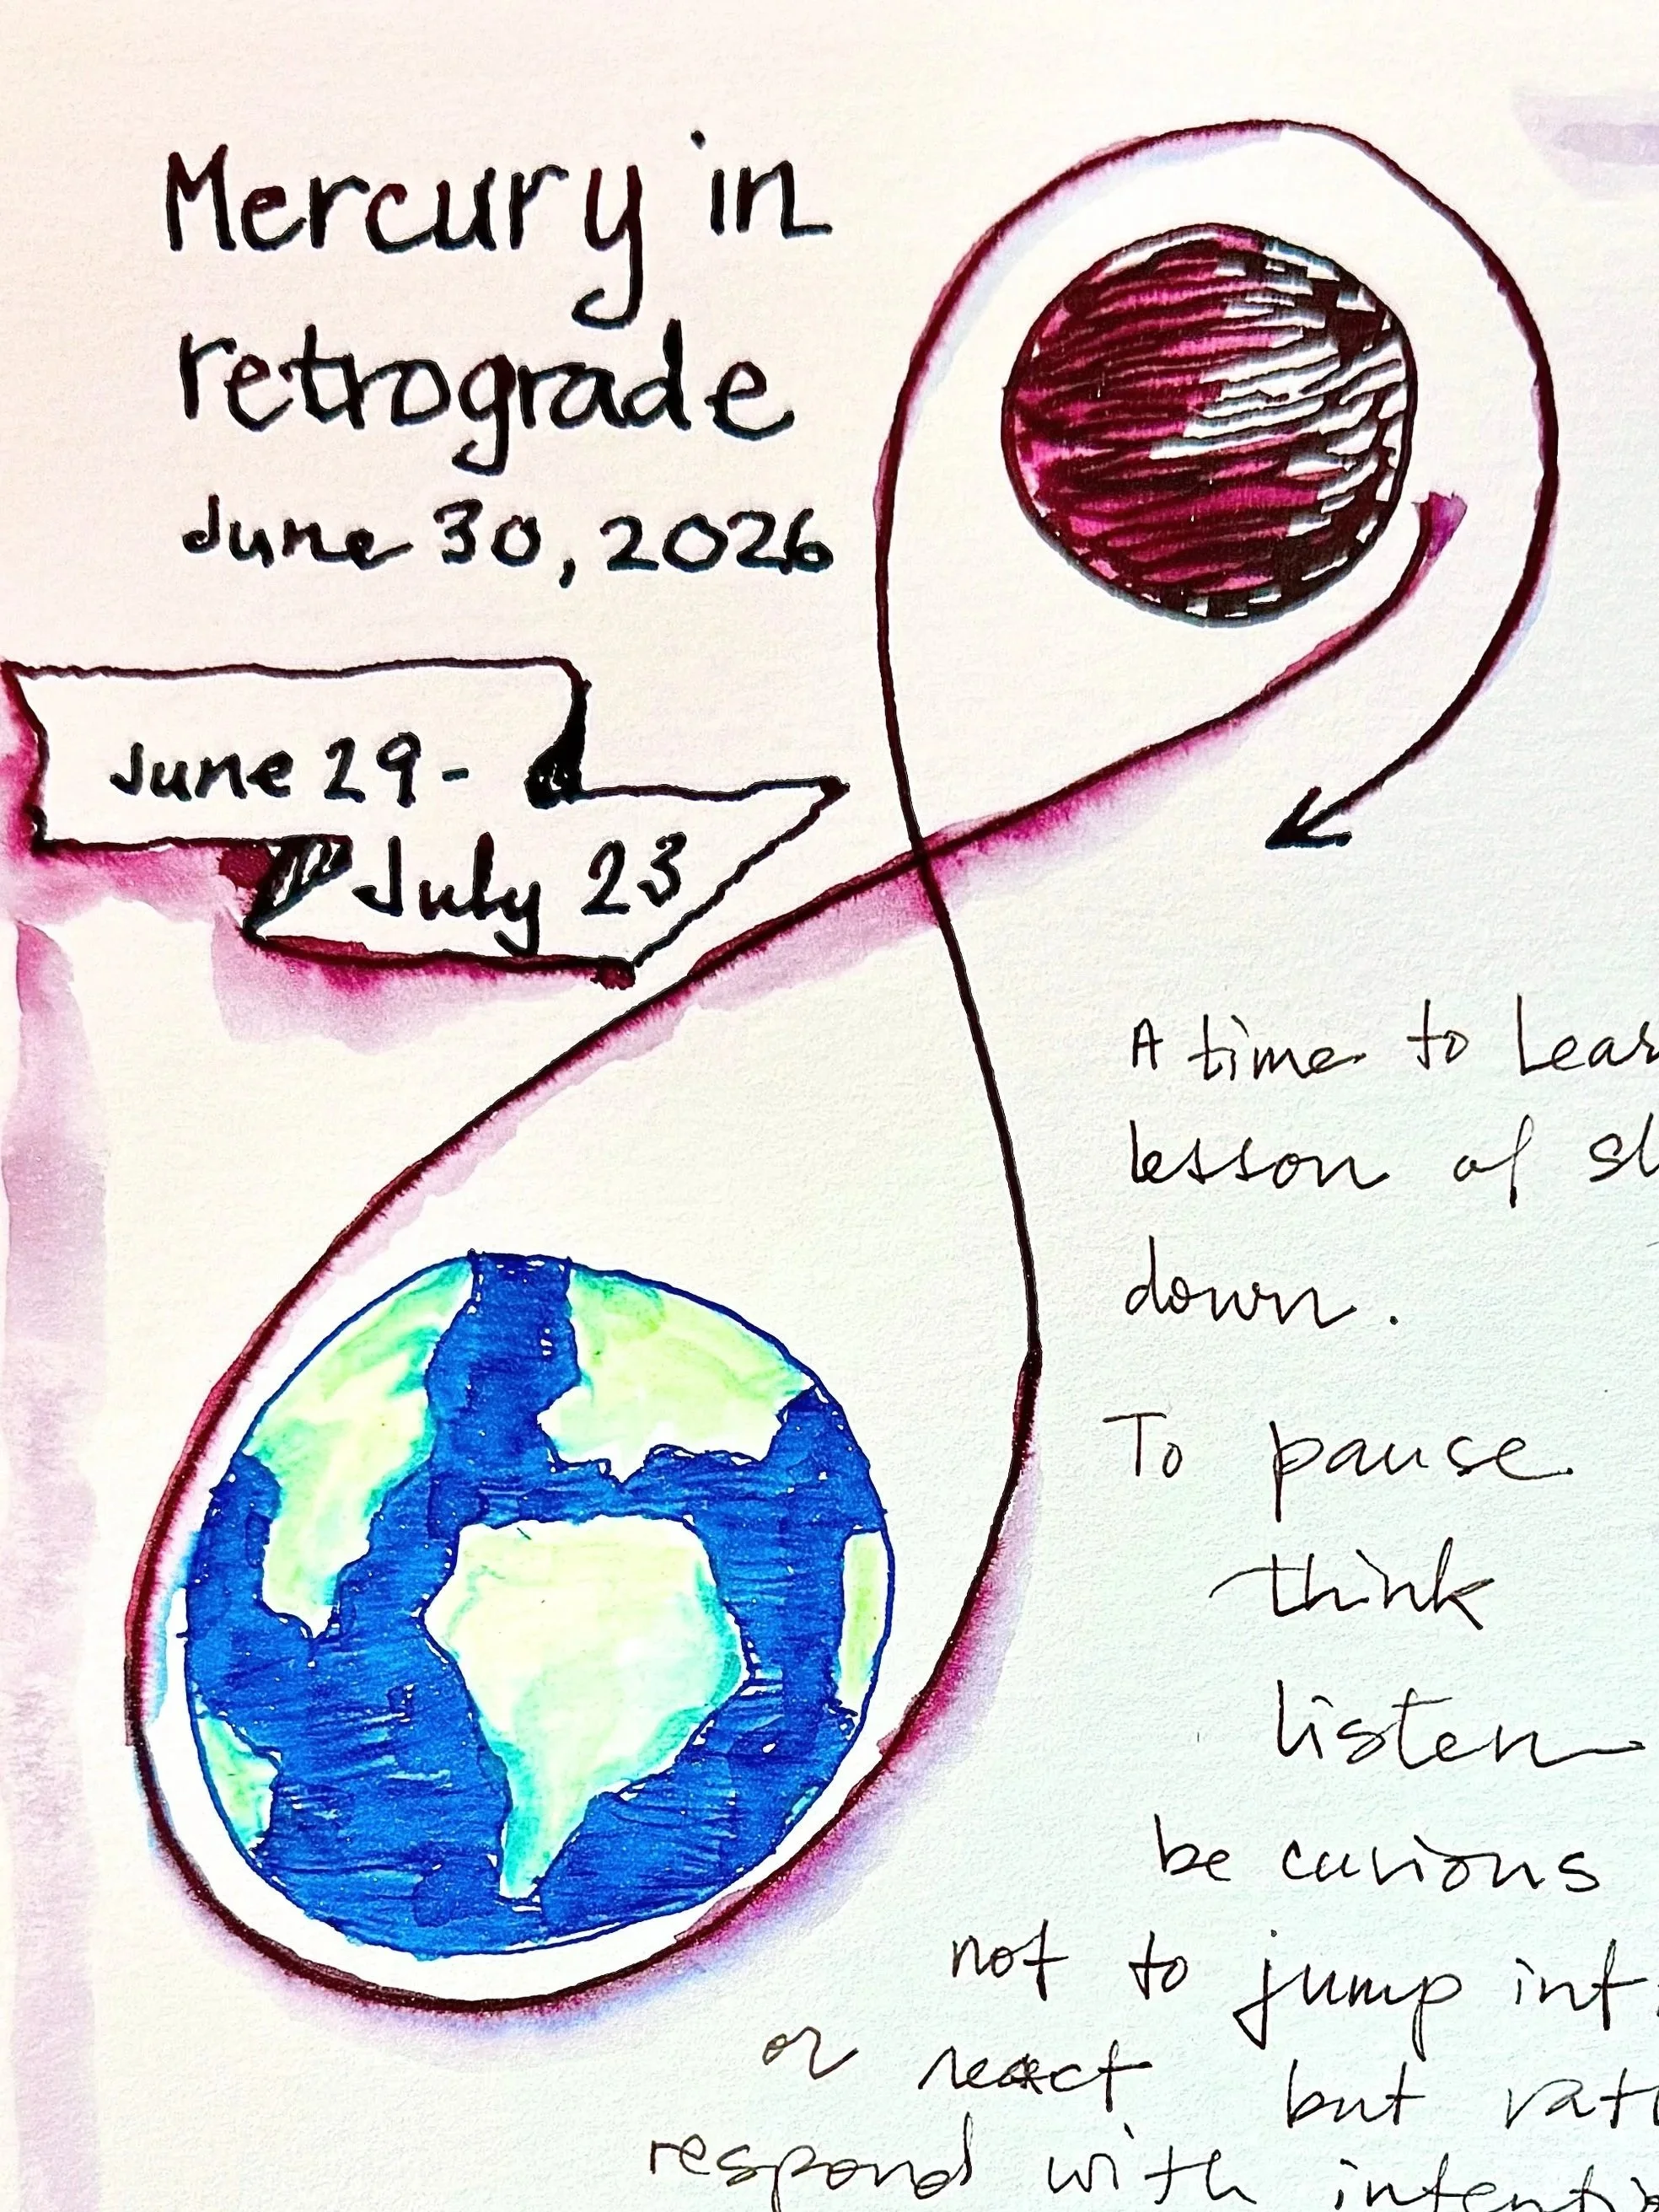 Mercury in
retrograde
June 30, 2026
June 29-
July 23
A time to lear
lesson of sl
down.
To pause
think
listen
be curious
not to jump int
or react but rat
respond with intenti